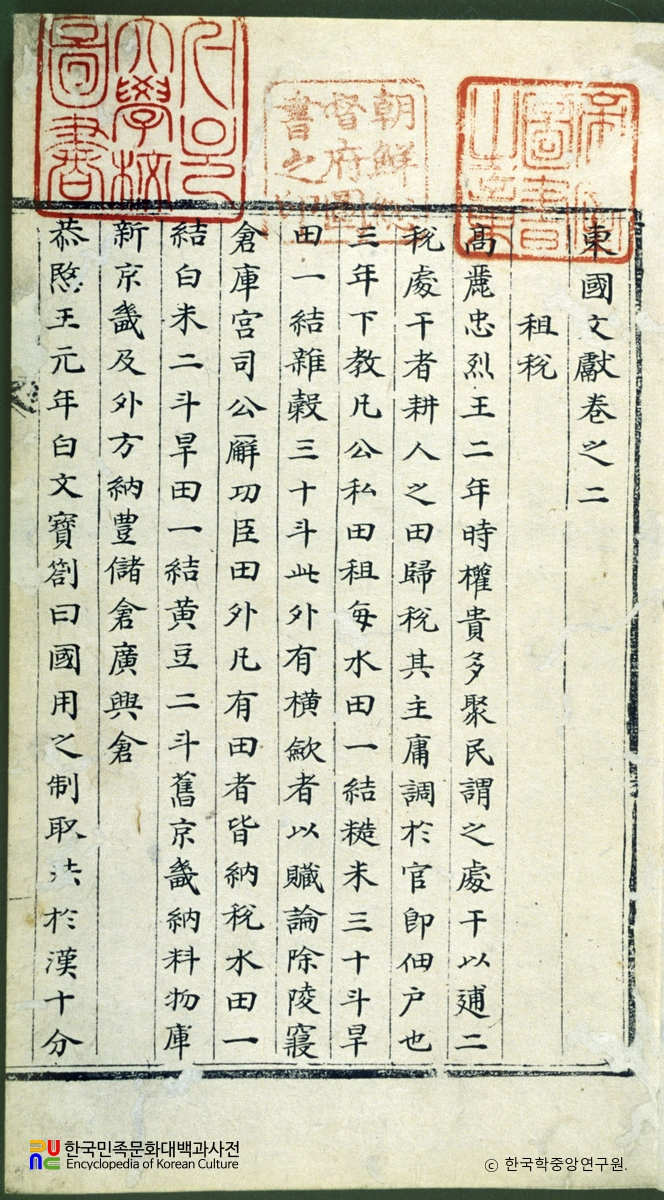 東國文獻卷之二
租稅
高麗忠烈王二年時權貴多聚民謂之處干以逋二
稅處干者耕人之田歸稅其主庸調於官卽佃户也
三年下教凡公私田租每水田一結糙米三十斗旱
田一結雜穀三十斗此外有橫歛者以贓論除陵寢
倉庫宮司公廨功臣田外凡有田者皆納稅水田一
結白米二斗旱田一結黄豆二斗舊京畿納料物庫
新京畿及外方納豊儲倉廣興倉
恭愍王元年白文寶劄曰國用之制取法於漢十分
朝鮮總
督府圖
書之印
大學校
圖書
한국민족문화대백과사전
Encyclopedia of Korean Culture
© 한국학중앙연구원.